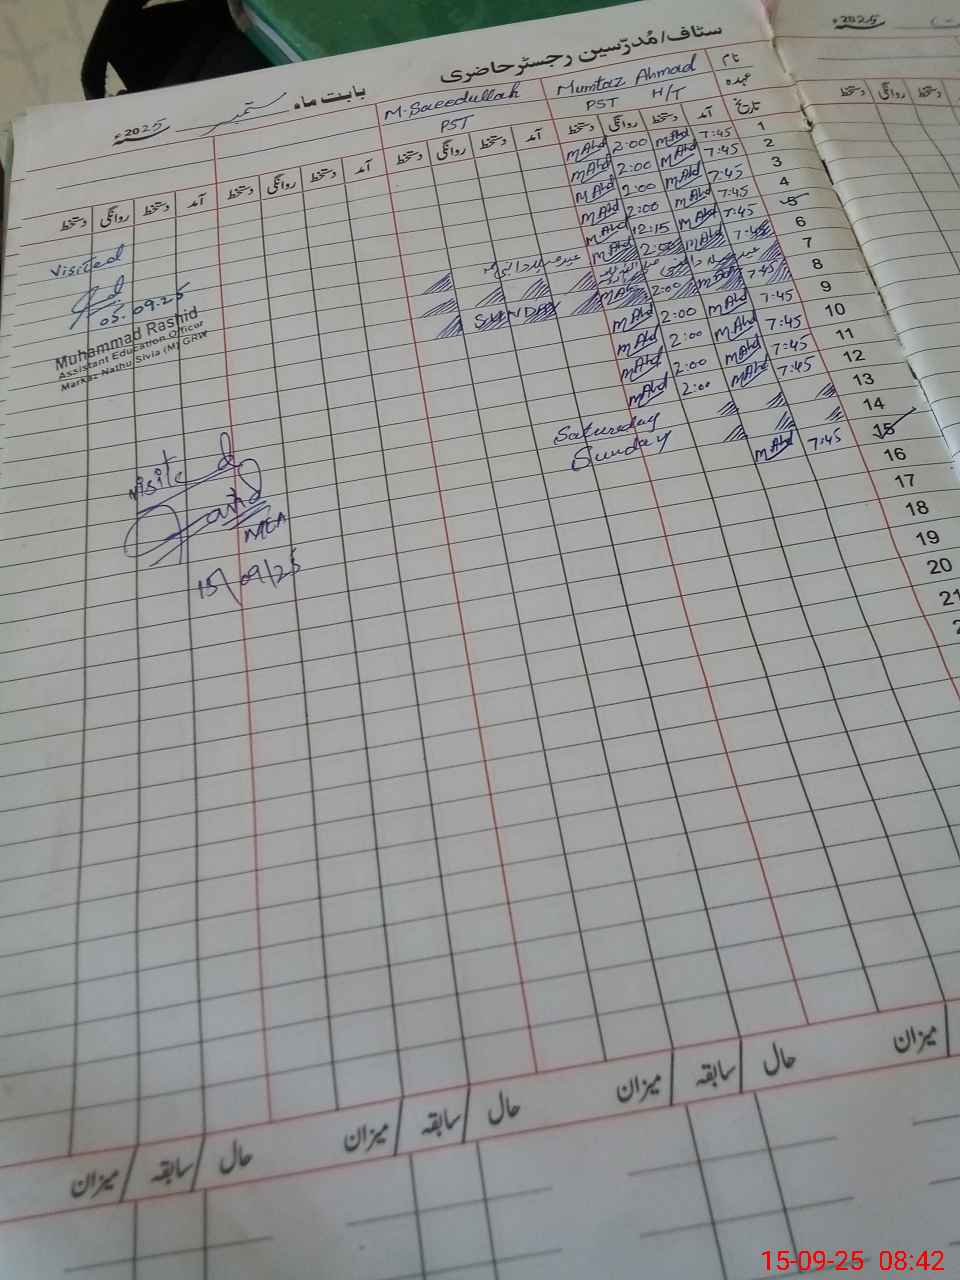 سٹاف/مُدرّسین رجسٹر حاضری
بابت ماہ ستمبر 2025ء
2025ء
نام Mumtaz Ahmad M. Saeedullah
عہدہ H/T PST PST
تاریخ آمد دستخط روانگی دستخط آمد دستخط روانگی دستخط آمد دستخط روانگی دستخط آمد دستخط روانگی دستخط
دستخط روانگی دستخط
1 7:45 MAhd 2:00 MAhd
2 7:45 MAhd 2:00 MAhd
3 7:45 MAhd 2:00 MAhd
4 7:45 MAhd 2:00 MAhd
5 7:45 MAhd 12:15 MAhd
6 7:45 MAhd 2:00 MAhd
7 SUNDAY
8 7:45 MAhd 2:00 MAhd
9 7:45 MAhd 2:00 MAhd
10 7:45 MAhd 2:00 MAhd
11 7:45 MAhd 2:00 MAhd
12 7:45 MAhd 2:00 MAhd
13 Saturday
14 Sunday
15 7:45 MAhd
16
17
18
19
20
21
Visited
05.09.25
Muhammad Rashid
Assistant Education Officer
Markaz Nathu Sivia (M) GRW
Visited
MEA
15/09/25
میزان حال سابقہ میزان حال سابقہ میزان حال سابقہ میزان
15-09-25 08:42